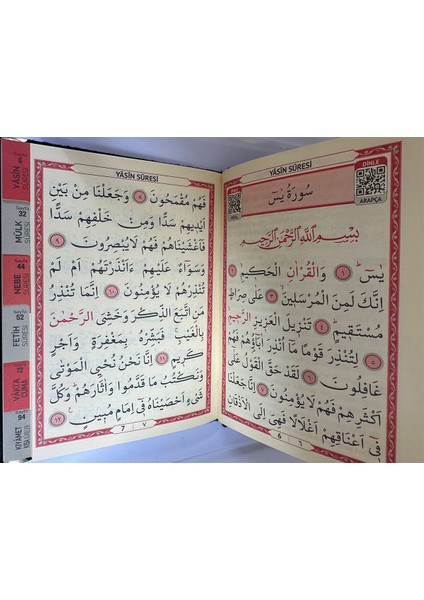 YÂSÎN SÛRESİ
DİNLE
سُورَةُ يٰسٓ
ARAPÇA
بِسْمِ اللّٰهِ الرَّحْمٰنِ الرَّحِيمِ
يٰسٓ ﴿١﴾ وَالْقُرْاٰنِ الْحَكِيمِ ﴿٢﴾
اِنَّكَ لَمِنَ الْمُرْسَلِينَ ﴿٣﴾ عَلٰى صِرَاطٍ
مُسْتَقِيمٍ ﴿٤﴾ تَنْزِيلَ الْعَزِيزِ الرَّحِيمِ
﴿٥﴾ لِتُنْذِرَ قَوْمًا مَٓا اُنْذِرَ اٰبَٓاؤُ۬هُمْ فَهُمْ
غَافِلُونَ ﴿٦﴾ لَقَدْ حَقَّ الْقَوْلُ عَلٰٓى
اَكْثَرِهِمْ فَهُمْ لَا يُؤْمِنُونَ ﴿٧﴾ اِنَّا جَعَلْنَا
ف۪ٓي اَعْنَاقِهِمْ اَغْلَالًا فَهِيَ اِلَى الْاَذْقَانِ
6 ٦
YÂSÎN SÛRESİ
فَهُمْ مُقْمَحُونَ ﴿٨﴾ وَجَعَلْنَا مِنْ بَيْنِ
اَيْدِيهِمْ سَدًّا وَمِنْ خَلْفِهِمْ سَدًّا
فَاَغْشَيْنَاهُمْ فَهُمْ لَا يُبْصِرُونَ ﴿٩﴾
وَسَوَٓاءٌ عَلَيْهِمْ ءَاَنْذَرْتَهُمْ اَمْ لَمْ
تُنْذِرْهُمْ لَا يُؤْمِنُونَ ﴿١٠﴾ اِنَّمَا تُنْذِرُ
مَنِ اتَّبَعَ الذِّكْرَ وَخَشِيَ الرَّحْمٰنَ
بِالْغَيْبِۚ فَبَشِّرْهُ بِمَغْفِرَةٍ وَاَجْرٍ
كَرِيمٍ ﴿١١﴾ اِنَّا نَحْنُ نُحْيِي الْمَوْتٰى
وَنَكْتُبُ مَا قَدَّمُوا وَاٰثَارَهُمْۜ وَكُلَّ
شَيْءٍ اَحْصَيْنَاهُ ف۪ٓي اِمَامٍ مُبِينٍ ﴿١٢﴾
7 ٧
Sayfa 6
YÂSÎN SÛRESİ
Sayfa 32
MÜLK SÛRESİ
Sayfa 44
NEBE SÛRESİ
Sayfa 52
FETİH SÛRESİ
VÂKIA
CUMA
Sayfa 94
KIYÂMET